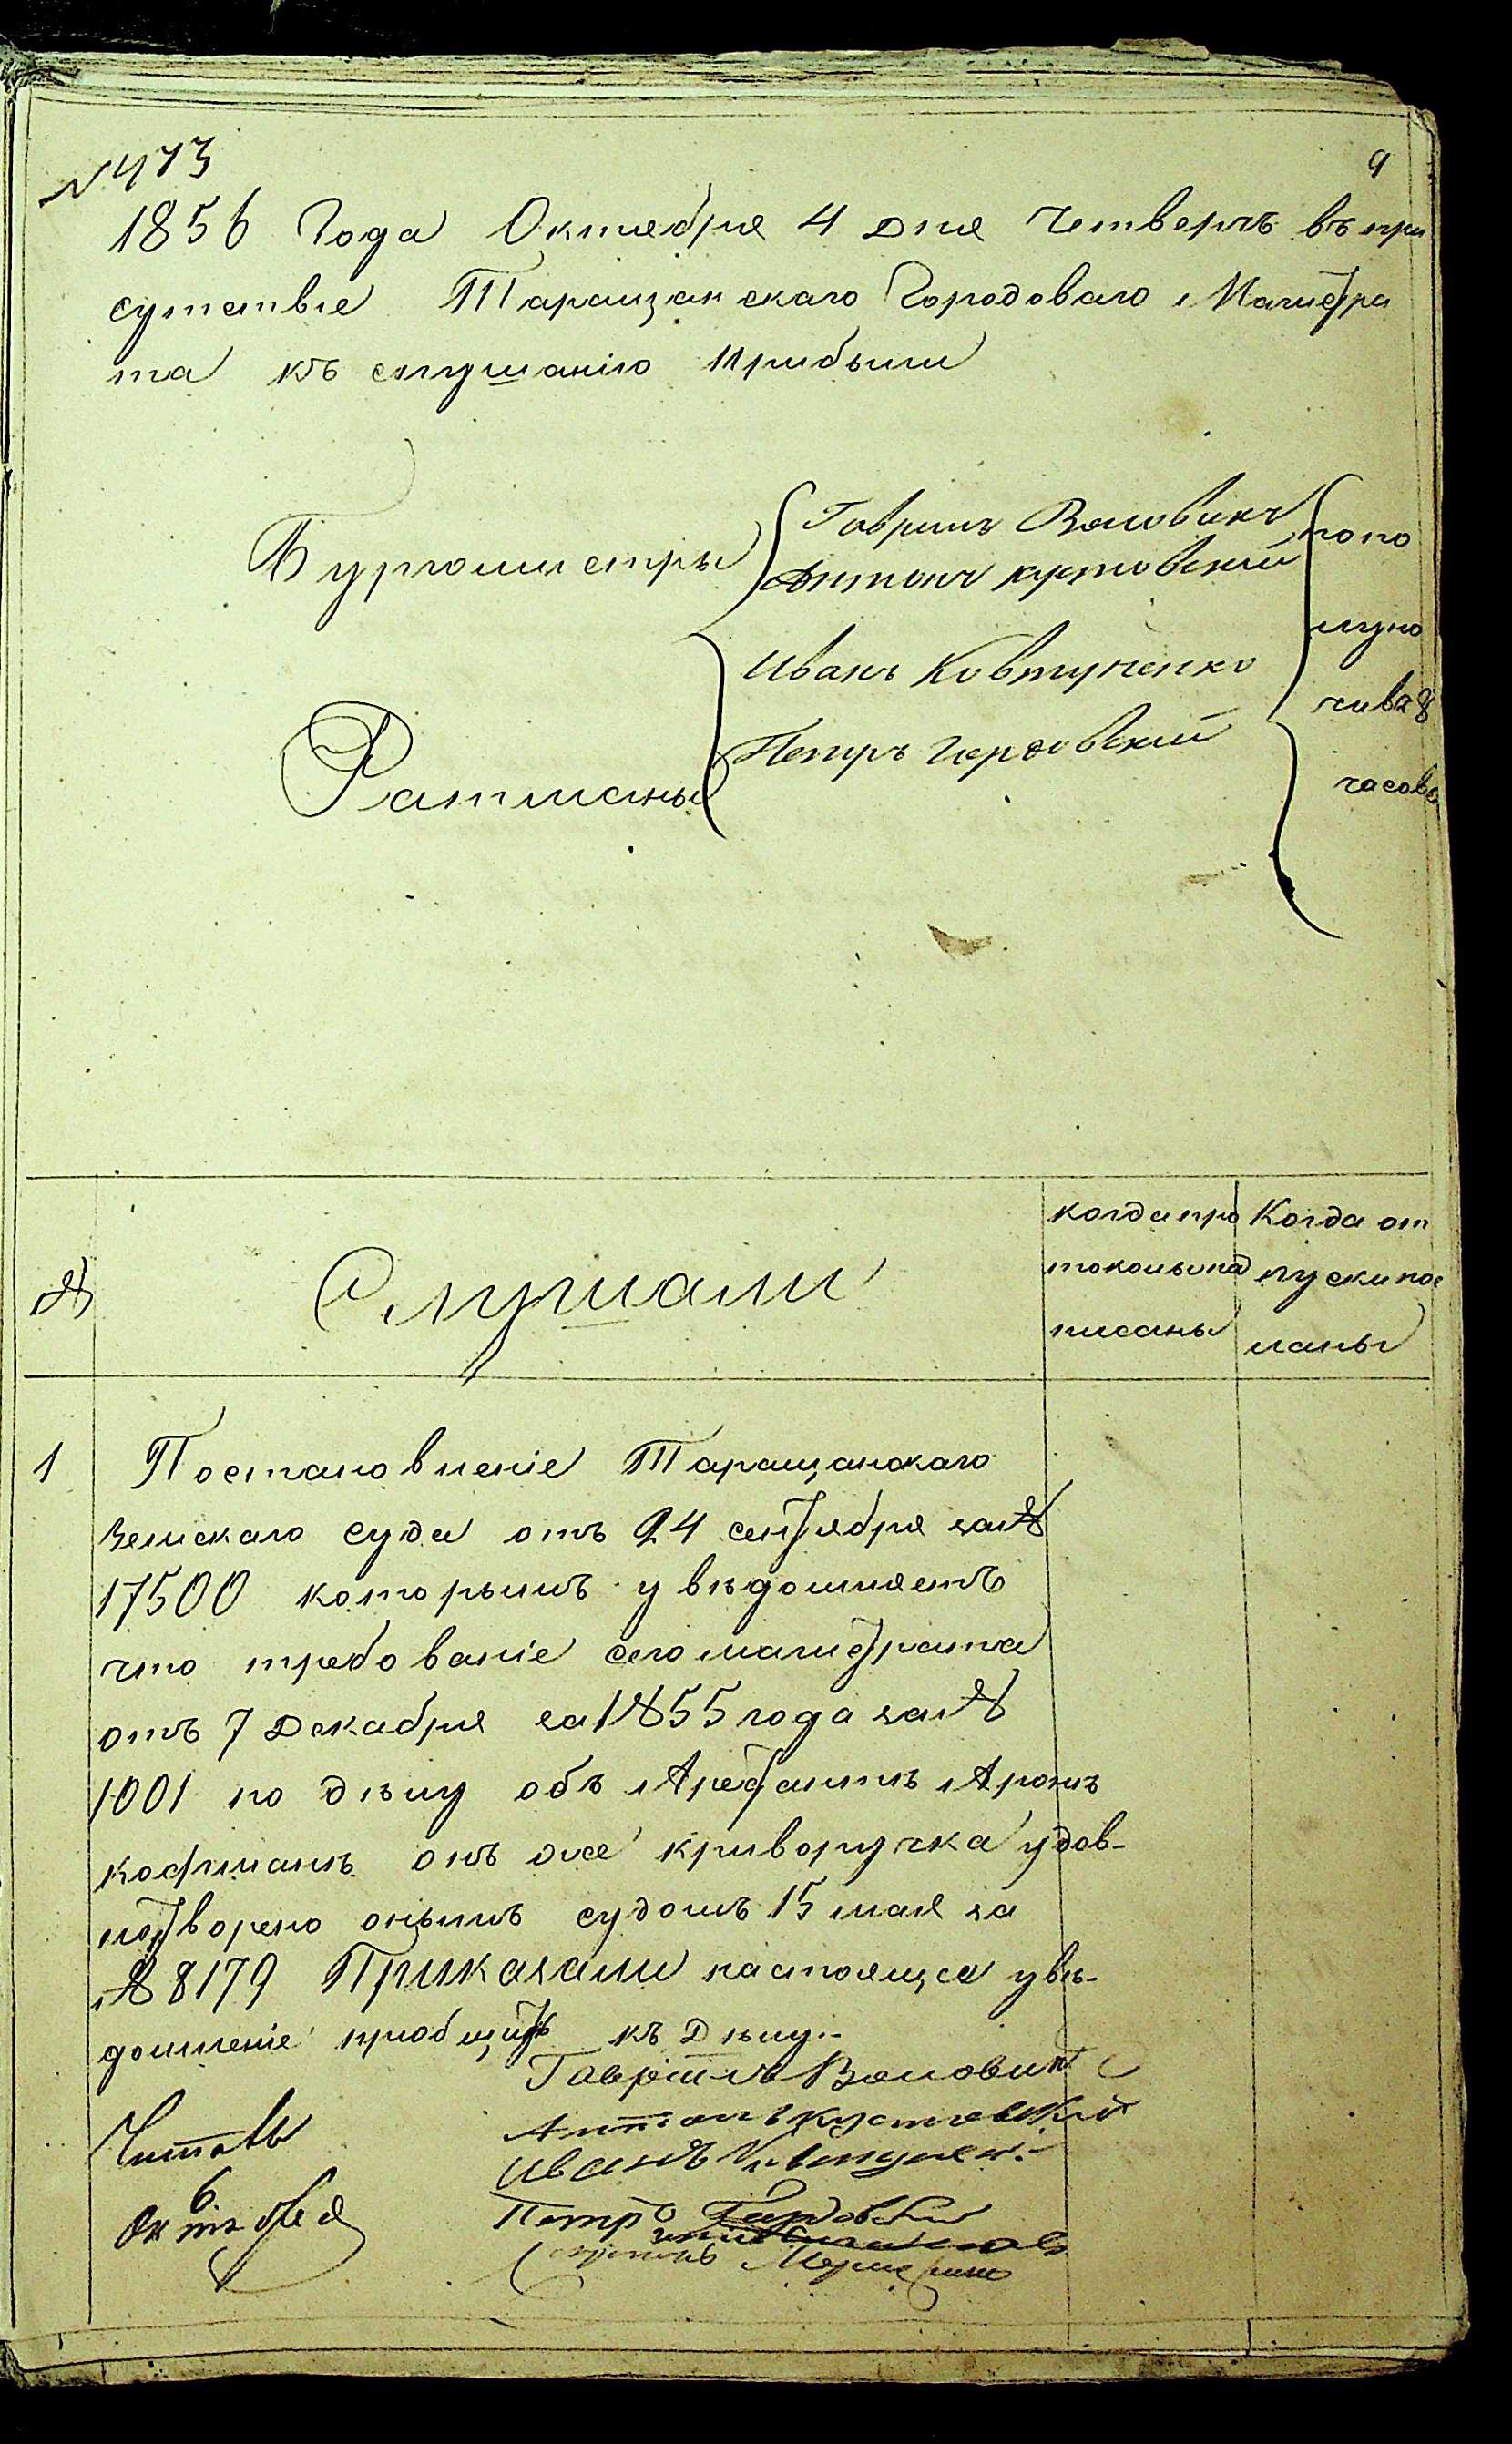 № 473
9
1856 Года Октября 4 дня Четвергъ въ при
сутствіе Таращанскаго Городоваго Магистра
та къ слушанію прибыли
Бургомистры
Гаврилъ Воловикъ
Антонъ
Ратманы
Иванъ Ковтуненко
Петръ Гердовский
попо
луно
чи въ 8
часовъ
№
Слушали
когда про
токолы под
писаны
Когда от
пуски пос
ланы
1
Постановленіе Таращанскаго
Земскаго суда отъ 24 сентября за №
17500 которымъ увѣдомляетъ
что требованіе сего магистрата
отъ 7 Декабря 1855 года за №
1001 по дѣлу объ Арестантѣ Аронѣ
Кофманѣ онъ же криворучка удов-
летворено онымъ судомъ 15 мая за
№ 8179 Приказали настоящее увѣ-
домленіе пріобщить къ Дѣлу.-
Гаврилъ Воловикъ
Читалъ
6
Октября
Иванъ
Петръ